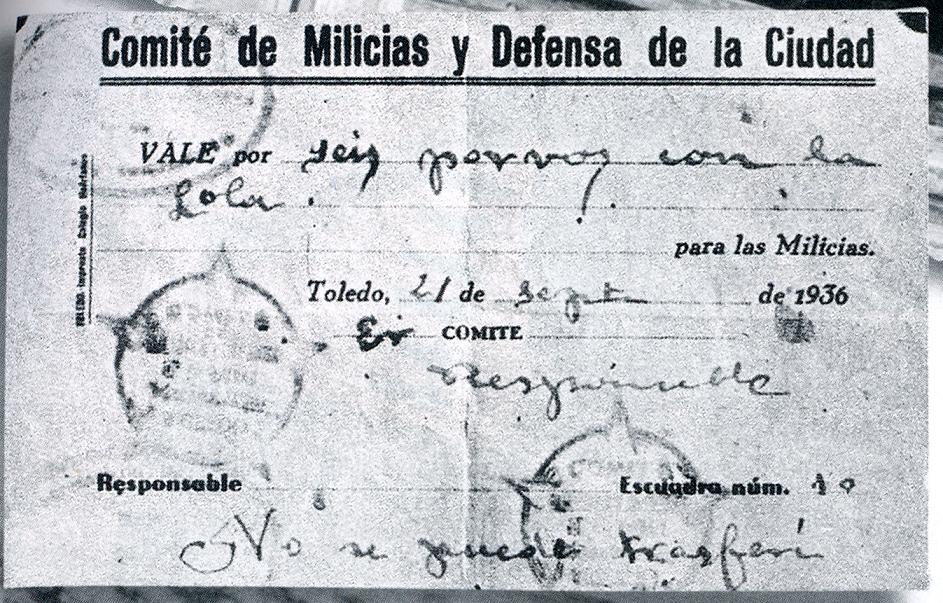 Comité de Milicias y Defensa de la Ciudad
VALE por seis porvos con la
Lola.
para las Milicias.
Toledo, 21 de Sept de 1936
Er COMITE
Responsable
Responsable Escuadra núm. 10
No se puede trasferi
TOLEDO. Imprenta Colegio Huérfanos